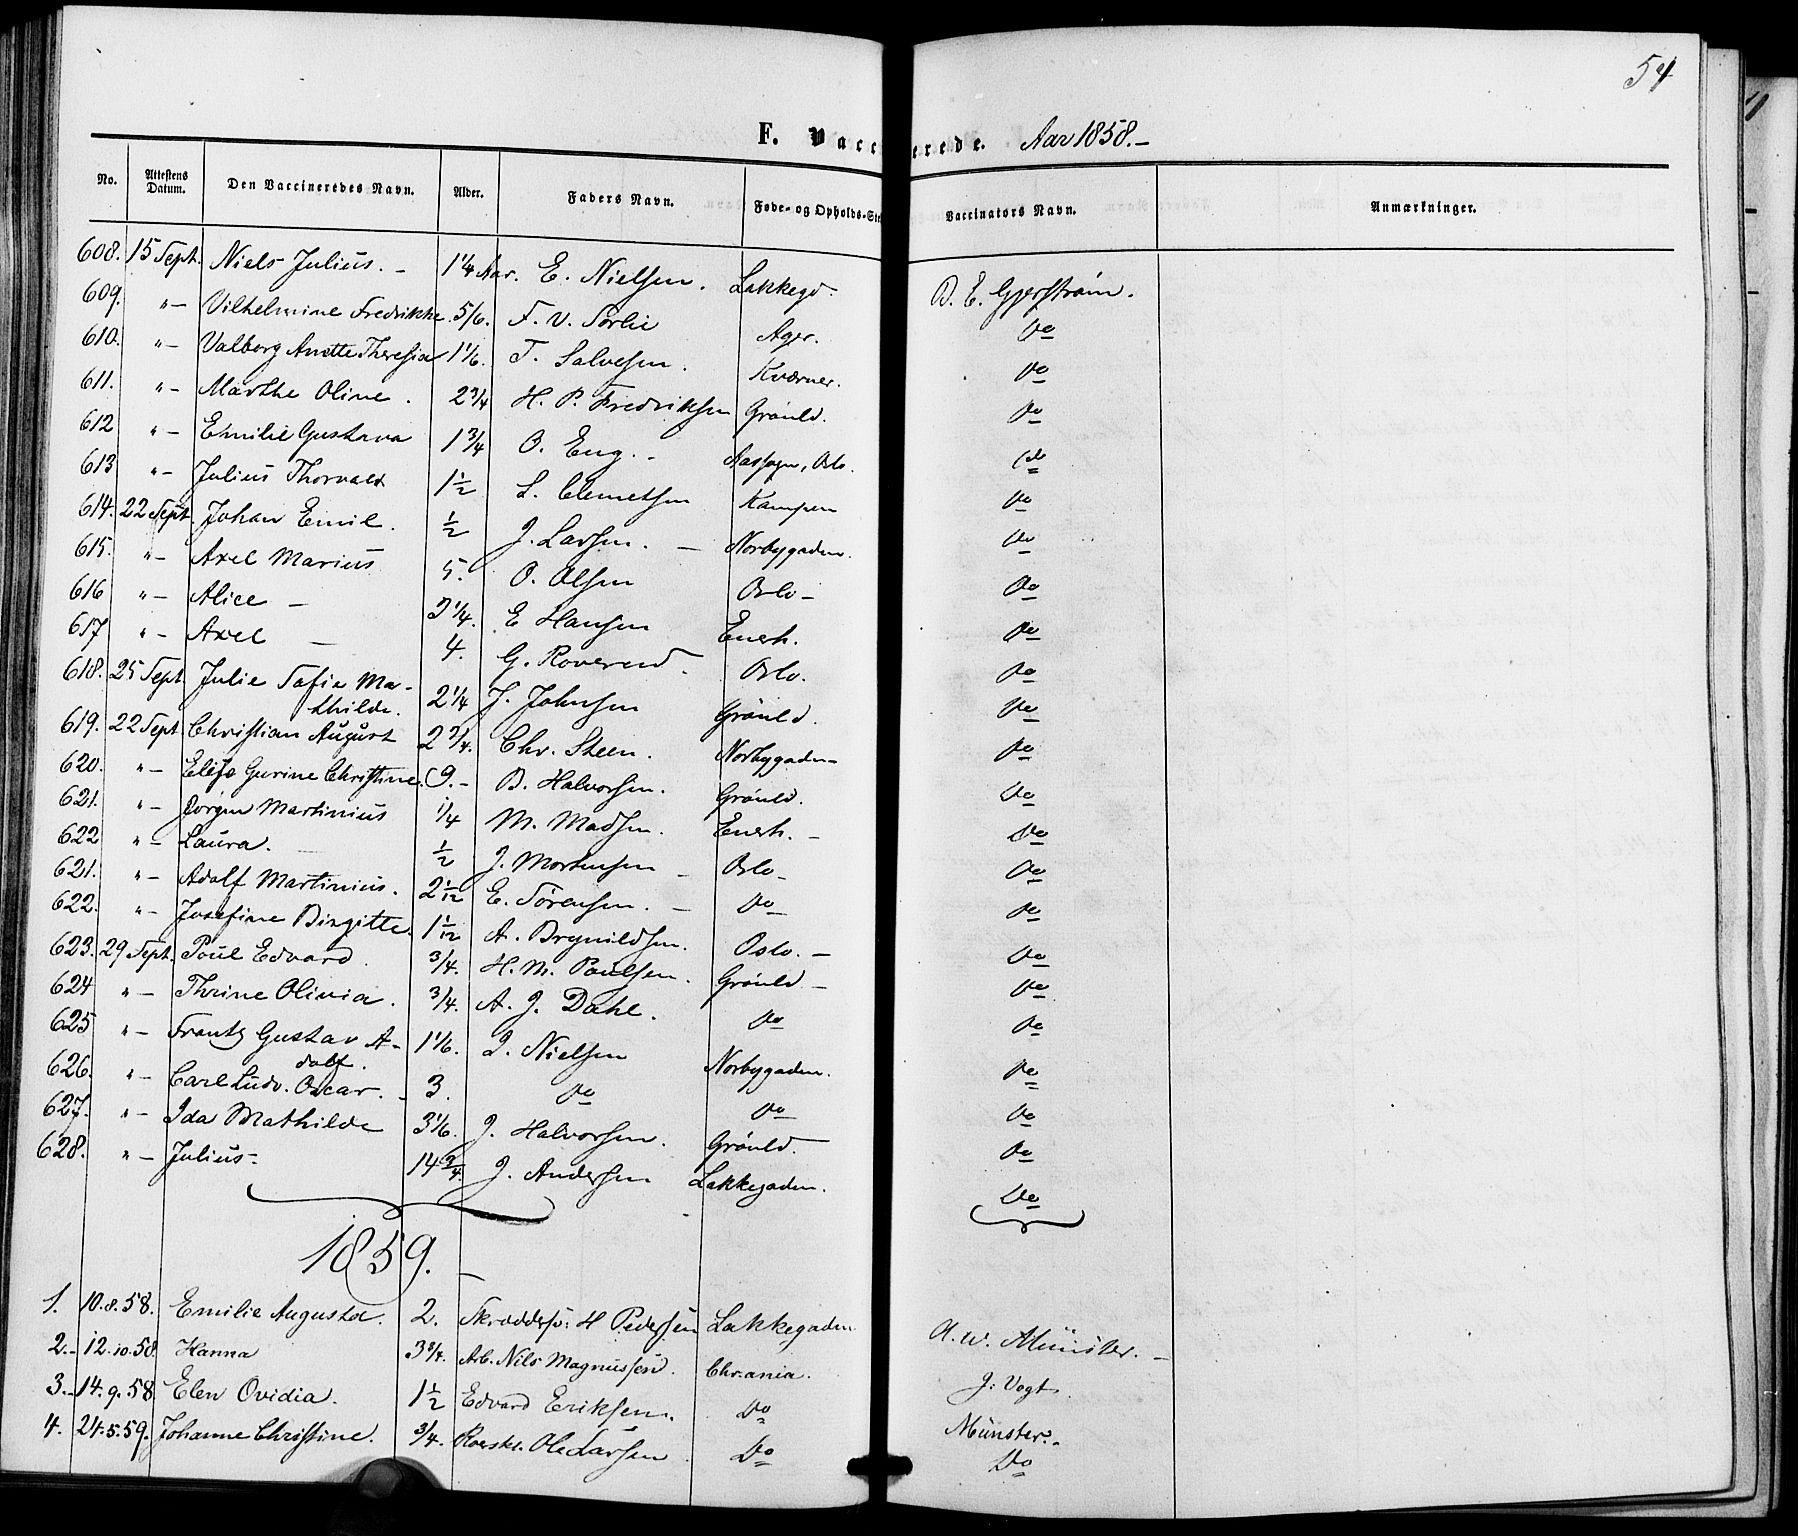 54
F. Vaccinerede. Aar 1858.-
No. Attestens Datum. Den Vaccineredes Navn. Alder. Faders Navn. Føde- og Opholds-Ste Vaccinators Navn. Anmærkninger.
608. 15 Sept. Niels Julius. - 1 1/4 Aar. E. Nielsen. Lakkegd. D. E. Gjerstrøm.
609. " - Vilhelmine Fredrikke. 5/6. F. V. Sørlie Ager. Do
610. " - Valborg Anette Theresia 1 1/6. T. Salvesen. Kværner. Do
611. " - Marthe Oline. 2 3/4 H. P. Fredriksen Grønld. Do
612 " - Emilie Gustava 1 3/4 O. Eng. - Aassogn, Oslo. Do
613 " - Julius Thorvald 1 1/2 L. Clemetsen Kampen Do
614. 22 Sept. Johan Emil. 1/2 J. Larsen. - Norbygaden. Do
615. " - Axel Marius 5. O. Olsen Oslo - Do
616 " - Alice - 3 1/4. E Hansen Enerh. Do
617 " - Axel - 4. G. Roverud. Oslo. Do
618. 25 Sept. Julie Sofie Ma-
thilde. 2 1/4 J. Johnsen Grønld. Do
619. 22 Sept. Christian August 2 3/4. Chr. Steen. Norbygaden- Do
620. " - Elise Gurine Christine. 9. - B. Halvorsen. Grønld. Do
621. " - Jørgen Martinius 1/4 M. Madsen. Enerh. - Do
622 " - Laura. - 1/2 J. Mortensen - Oslo - Do
621. " - Adolf Martinius. 2 1/12 E. Sørensen. - Do Do
622. " - Josefine Birgitte. 1 1/12 A. Brynildsen. Oslo. - Do
623. 29 Sept. Poul Edvard. 3/4. H. M. Paulsen. Grønld - Do
624 " - Thrine Olivia. 3/4. A. J. Dahl. Do Do
625 " - Frantz Gustav A-
dolf. 1 1/6. L. Nielsen Norbygaden. Do
626. " - Carl Ludv. Oscar. - 3. Do Do Do
627. " - Ida Mathilde 3 1/6. J. Halvorsen. Grønld. Do
628. " - Julius - 14 3/4. J. Andersen Lakkegaden. Do
1859. -
1. 10.8.58. Emilie Augusta. 2. Skræddersv: H Pedersen Lakkegaden A. W. Münster. -
2. - 12.10.58. Hanna 3 3/4. Arb. Nils Magnussen. Chr.ania. J. Vogt.
3. - 14.9.58 Elen Ovidia. 1 1/2 Edvard Eriksen. Do Münster. -
4. 24.5.59. Johanne Christine. 3/4. Ole Larsen Do Do